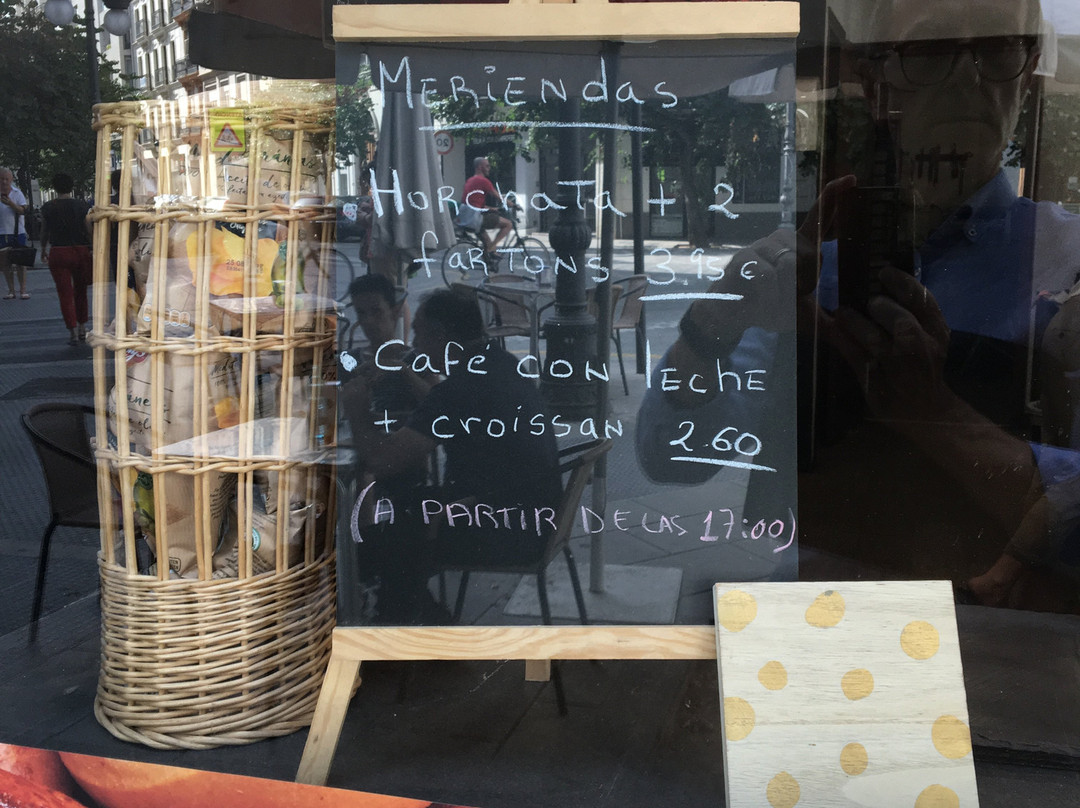 MERiENdas
• HORCHATA + 2
fARTONS 3.95 €
• Café CON lECHE
+ CROiSSAN 2.60
(A PARTIR DE LAS 17:00)